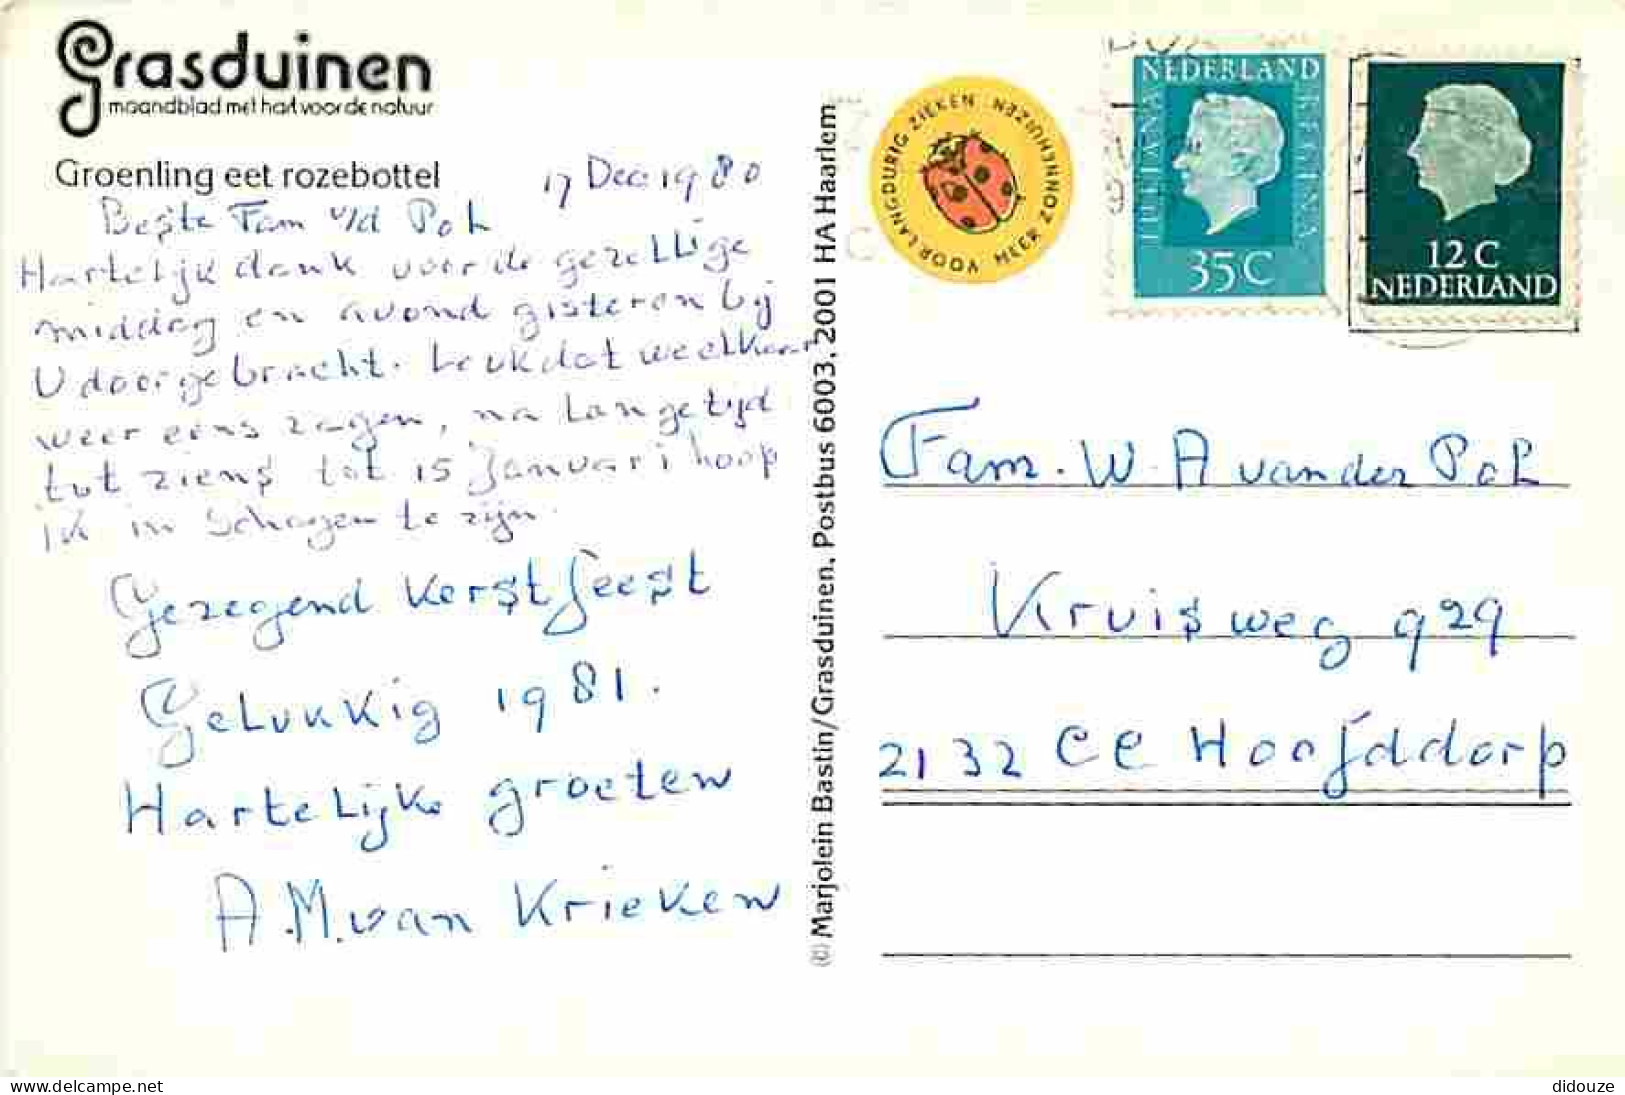 Grasduinen
maandblad met hart voor de natuur
Groenling eet rozebottel
17 Dec 1980
Beste Fam v/d Pol
Hartelijk dank voor de gezellige
middag en avond gisteren bij
U doorgebracht. Leuk dat we elkaar
weer eens zagen, na lange tijd
tot ziens tot 15 Januari hoop
ik in Schagen te zijn.
Gezegend Kerstfeest
Gelukkig 1981.
Hartelijke groeten
A.M. van Krieken
(c) Marjolein Bastin/Grasduinen, Postbus 6003, 2001 HA Haarlem
VOOR LANGDURIG ZIEKEN
MEER ZONNEHUIZEN
NEDERLAND
JULIANA
REGINA
35 C
12 C
NEDERLAND
Fam. W. A van der Pol
Kruisweg 929
2132 CE Hoofddorp
www.delcampe.net
didouze